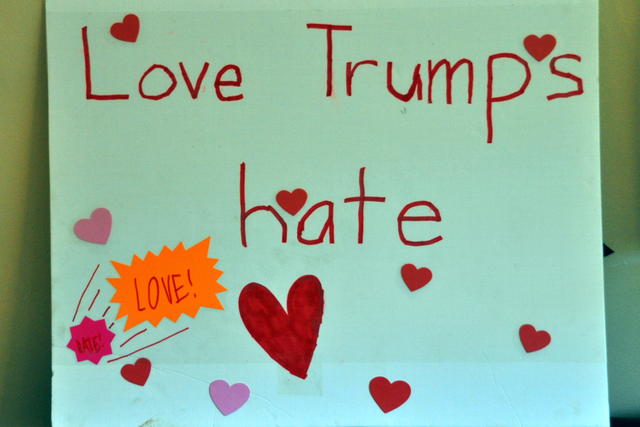 Love Trump's
hate
LOVE!
HATE!